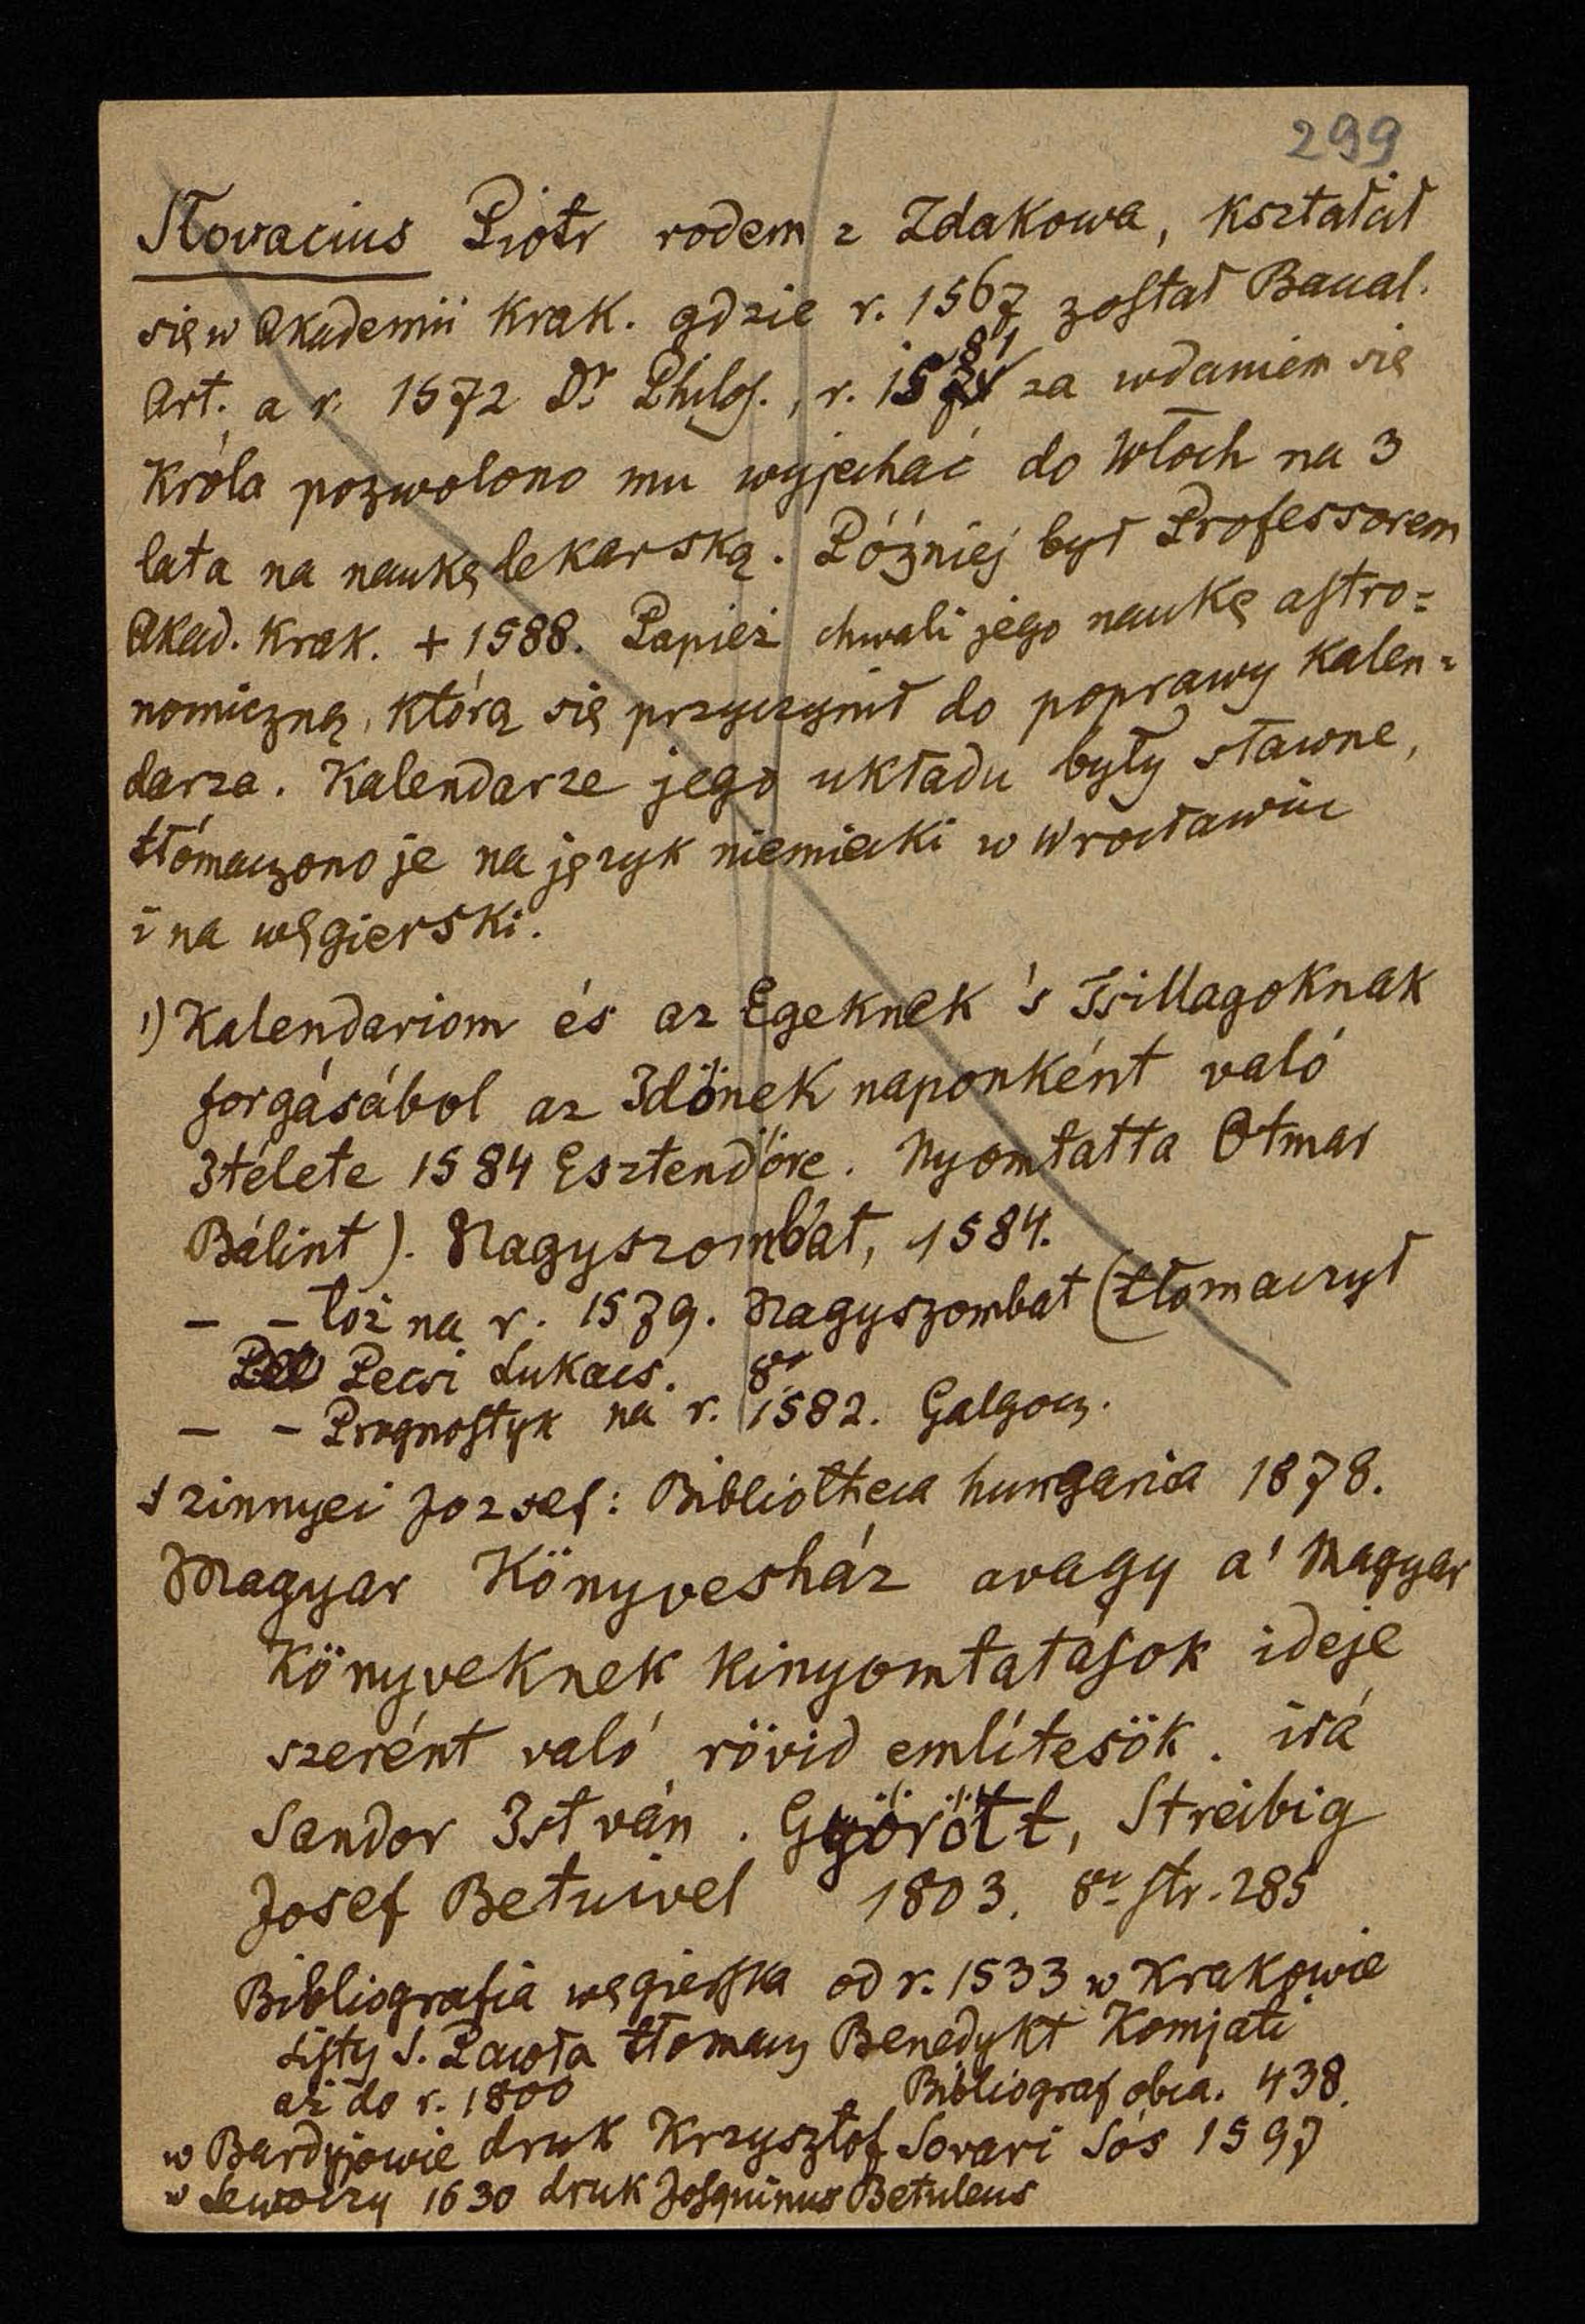 299
Słovacius Piotr rodem z Zdakowa, kształcił
się w Akademii Krak. gdzie r. 1567 został Baccal.
Art. a r. 1572 Dr Philos., r. 1581 za wdaniem się
Króla pozwolono mu wyjechać do Włoch na 3
lata na naukę lekarską. Później był Professorem
Akad. Krak. + 1588. Papież chwali jego naukę astro=
nomiczną, którą się przyczynił do poprawy Kalen=
darza. Kalendarze jego układu były sławne,
tłómaczono je na język niemiecki w Wrocławiu
i na węgierski.
1) Kalendariom és az Egeknek 's Tsillagoknak
forgásábol az Idönek naponként való
Itélete 1584 Esztendöre. Nyomtatta Otmar
Bálint). Nagyszombat, 1584.
— — toż na r. 1579. Nagyszombat (tłomaczył
Pecsi Lukacs. 8o
— — Prognostyk na r. 1582. Galgocz.
Szinnyei Jozsef: Bibliotheca hungarica 1878.
Magyar Könyvesház avagy a' Magyar
Könyveknek kinyomtatások ideje
szerént való rövid említesök. irá
Sandor István. Györött, Streibig
Josef Betuivel 1803. 8o str. 285
Bibliografia węgierska od r. 1533 w Krakowie
Listy S. Pawła tłomacz Benedykt Komjati
aż do r. 1800 Bibliograf obca. 438.
w Bardyjowie druk Krzysztof Sovari Sós 1597
w Lewoczy 1630 druk Betuleus